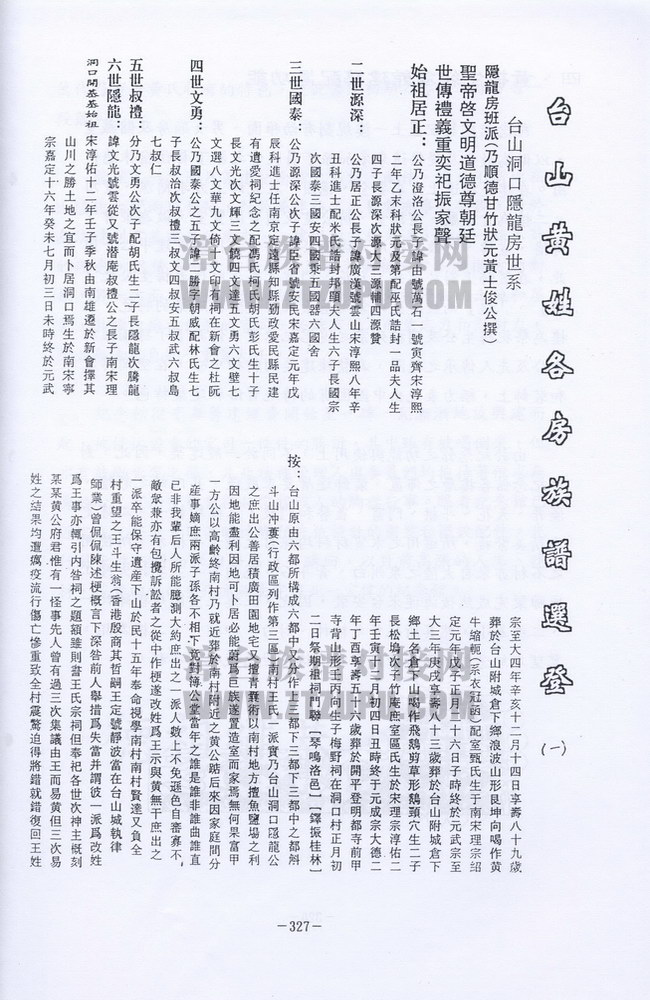 台山黃姓各房族譜選登 (一)
台山洞口隱龍房世系
隱龍房班派(乃順德甘竹狀元黃士俊公撰)
聖帝啓文明道德尊朝廷
世傳禮義重奕祀振家聲
始祖居正：公乃澄洛公長子諱由號萬石一號寅齊宋淳熙
二年乙未科狀元及第配巫氏誥封一品夫人生
四子長源深次源大三源輔四源贊
二世源深：公乃居正公長子諱廣漢號雲山宋淳熙八年辛
丑科進士配米氏誥封邦頤夫人生六子長國宗
次國泰三國安四國秉五國器六國舍
三世國泰：公乃源深公次子諱臣省號安民宋嘉定元年戊
辰科進士任南京定遠縣知縣勤政愛民縣民建
有遺愛祠紀念之配馮氏柯氏胡氏彭氏生十子
長文光次文輝三文饒四文達五文勇六文壁七
文選八文華九文倚十文印有祠在新會之杜阮
四世文勇：公乃國泰公之五子諱一勝字朝威配林氏生七
子長叔治次叔禮三叔文四叔安五叔武六叔島
七叔仁
五世叔禮：分乃文勇公次子配胡氏生二子長隱龍次騰龍
六世隱龍：諱文光號雲從又號潛庵叔禮公之長子南宋理
洞口開基始祖
宋淳佑十二年壬子季秋由南雄遷於新會擇其
山川之勝土地之宜而卜居洞口焉生於南宋寧
宗嘉定十六年癸未七月初三日未時終於元武
宗至大四年辛亥十二月十四日享壽八十九歲
葬於台山附城倉下鄉浪波山形艮坤向喝作黃
牛縮軛(宗衣冠函)配室甄氏生于南宋理宗紹
定元年戊子正月二十六日子時終於元武宗至
大三年庚戌享壽八十三歲葬於台山附城倉下
鄉土名倉下山喝作飛鵝剪草形鵝頸穴生二子
長松塢次子竹庵庶室區氏生於宋理宗淳佑二
年壬寅十二月初四日丑時終于元成宗大德二
年丁酉享壽五十六歲葬於開平登明都寺前甲
寺背山形壬丙向生子梅野祠在洞口村正月初
二日祭期祖祠門聯［琴鳴洛邑］［鐸振桂林］
按：台山原由六都所構成六都中分作上三都下三都下三都中之都斛
斗山冲蔞(行政區列作第三區)南村王氏一派實乃台山洞口隱龍公
之庶出公善居積廣田園地宅又擅青囊術以南村地方擅魚鹽場之利
因地能盡利因地可卜居必能蔚爲巨族遂置造室而家焉無何果富甲
一方公以高齡終南村乃就近葬於南村附近之黃公䟖后來因家庭間分
產事嫡庶兩派子孫各不相下竟對簿公堂當年之誰是誰非誰曲誰直
已非我輩后人所能臆測大約庶出之一派人數上不免遜色自審寡不
敵衆兼亦有包攬訴訟者之從中作梗遂改姓爲王示與黃無干庶出之
一派卒能保守遺產下山於民十五年奉命視學南村南村賢達又負全
村重望之王斗生翁(香港殷商其哲嗣王定號靜波當在台山城執律
師業)曾侃侃陳述梗概言下深咎前人舉措爲失當并謂彼一派爲改姓
爲王事亦輒引內咎祠之題額雖則書王氏宗祠但奉祀各世次神主概刻
某某黃公府君惟有一怪事先人曾有過三次集議由王而易黃但三次易
姓之結果均遭癘疫流行傷亡慘重致全村震驚迫得將錯就錯復回王姓
-327-